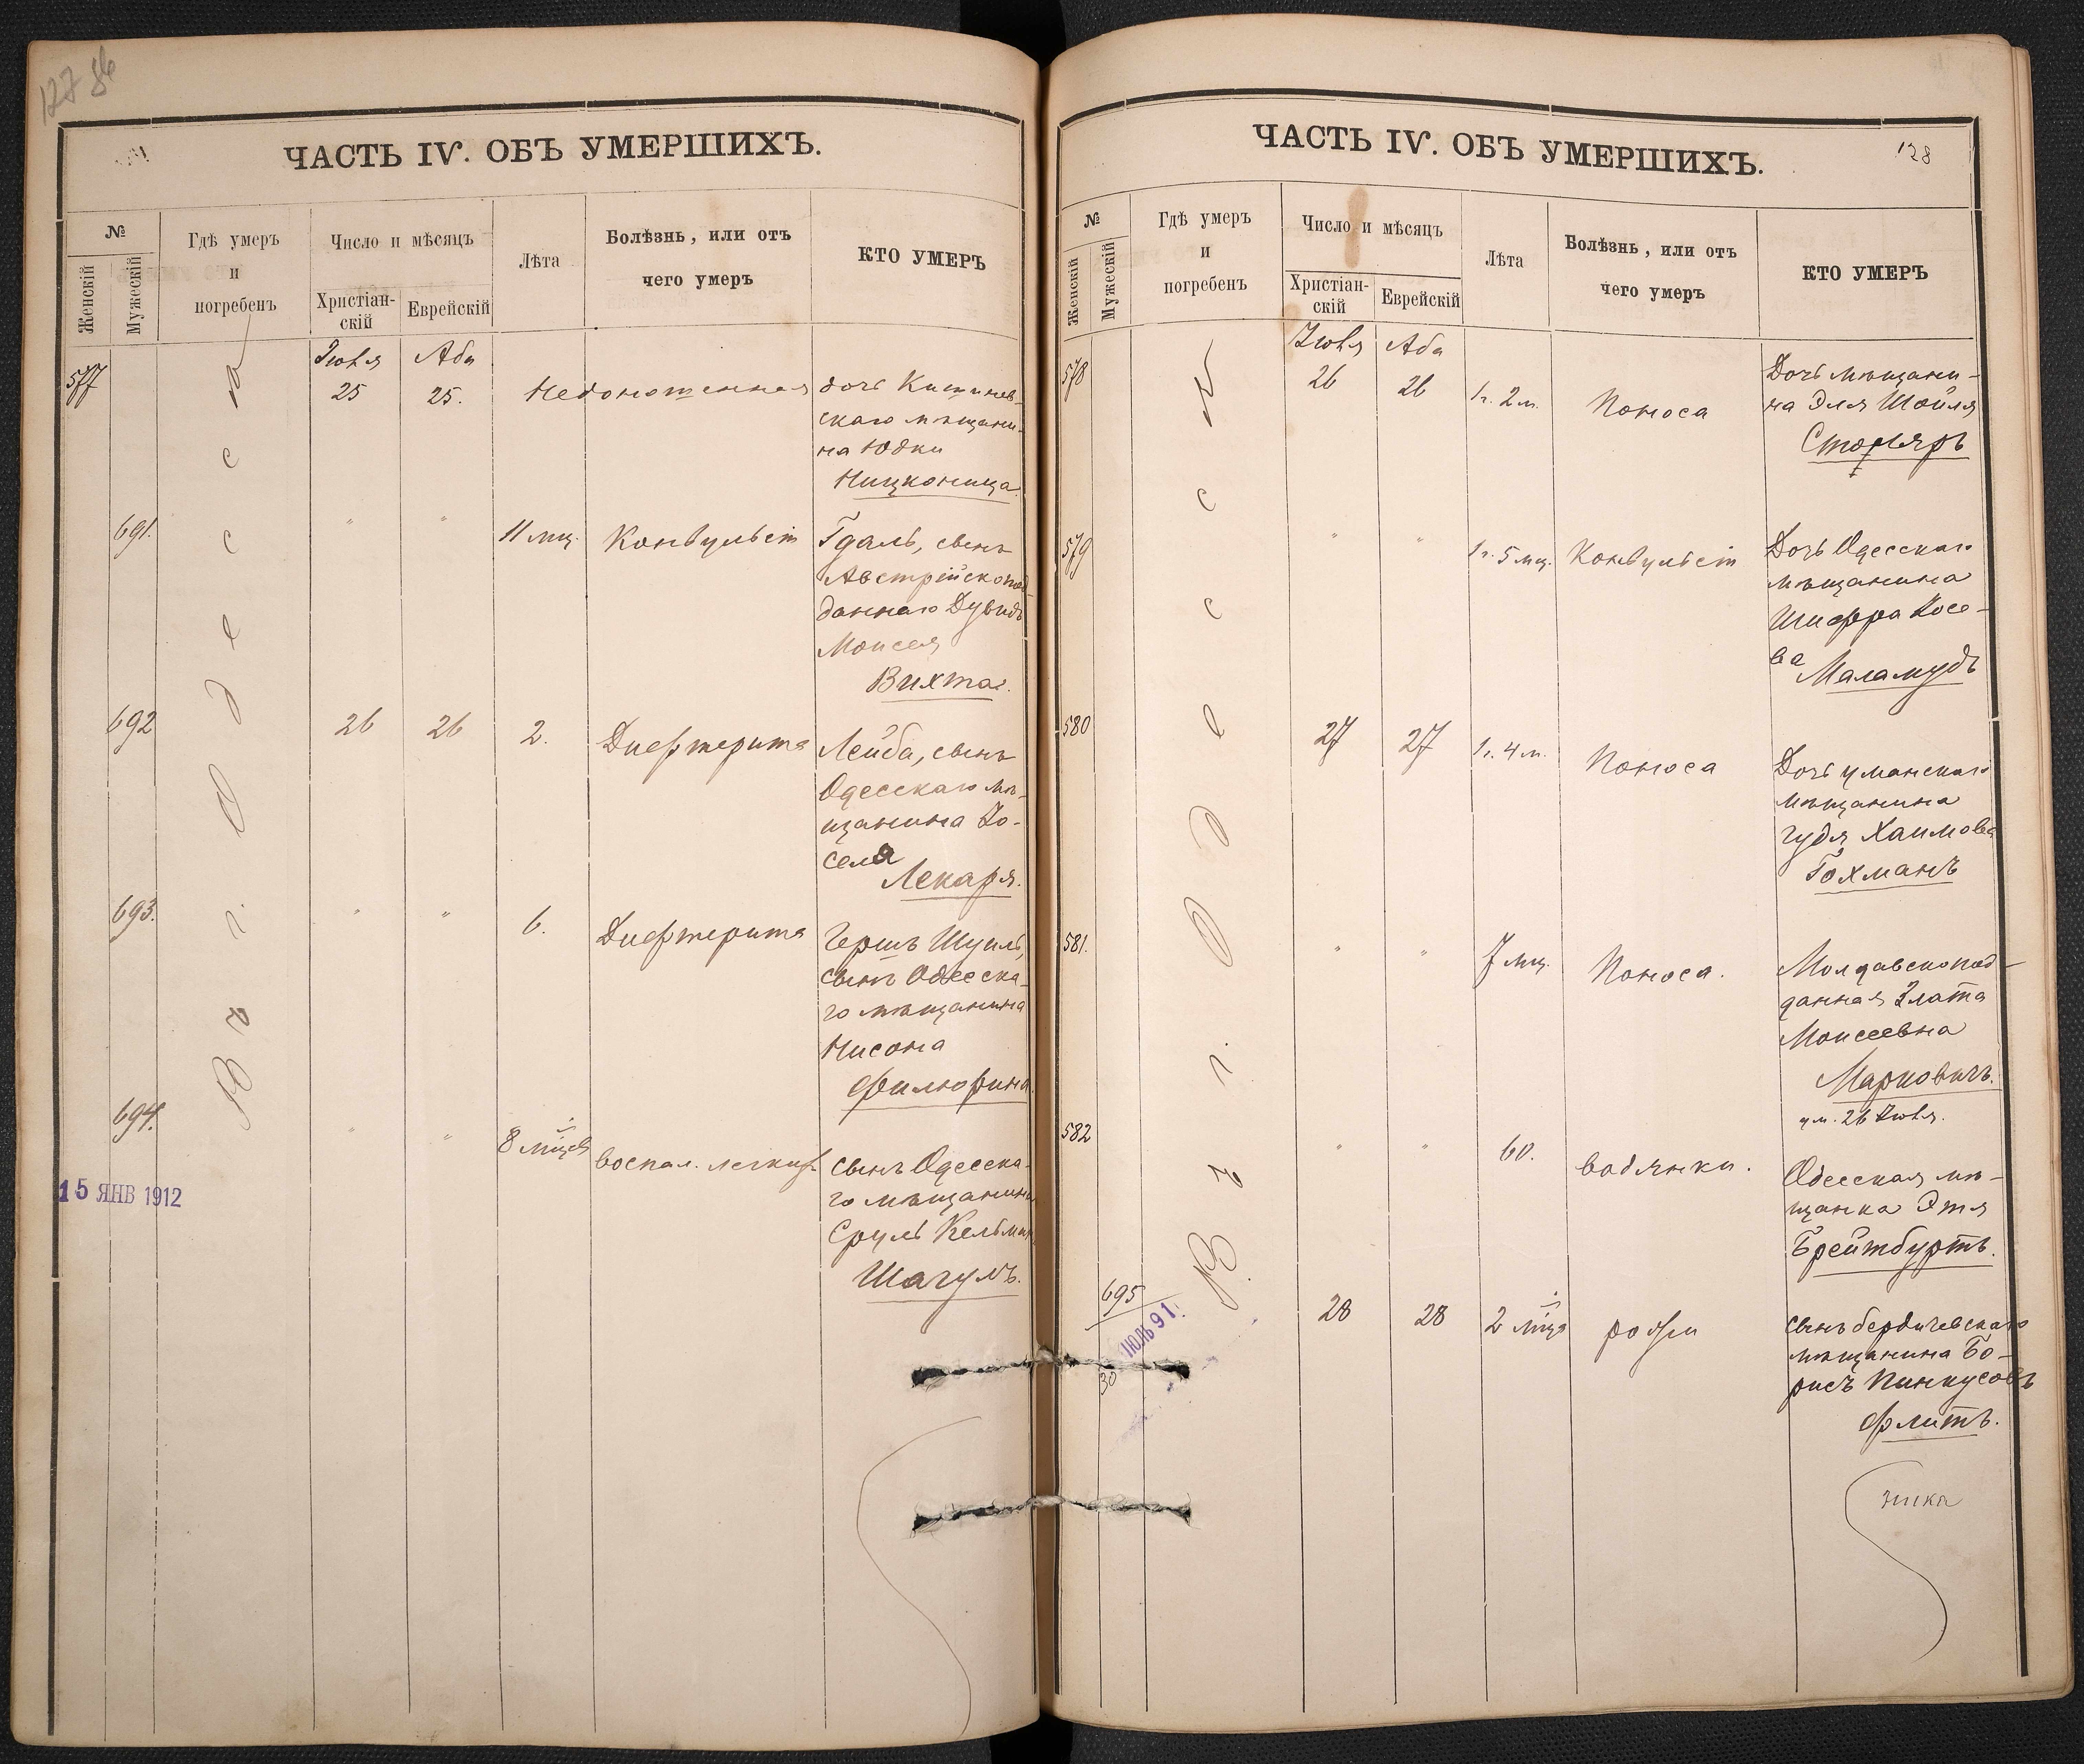 127 86
ЧАСТЬ IV. ОБЪ УМЕРШИХЪ.
№
Женскій
Мужескій
Гдѣ умеръ
и
погребенъ
Число и мѣсяцъ
Христіан-
скій
Еврейскій
Лѣта
Болѣзнь, или отъ
чего умеръ
КТО УМЕРЪ
Въ г. Одесса
Іюля Аба
577 25 25. Недоношенная дочь Кишинев-
скаго мѣщани-
на Юдки
Ницконица.
691. " " 11 мц. Конвульсіи Гдаль, сынъ
Австрійскопод-
даннаго Дувидъ
Моисея
Вихта.
692 26 26 2. Дифтерита Лейба, сынъ
Одесскаго мѣ-
щанина Іо-
селя
Лекаря.
693. " " 6. Дифтерита Гершъ Шуиль,
сынъ Одесска-
го мѣщанина
Нисона
Филюрина
694. " " 8 мцев воспал. легкихъ сынъ Одесска-
го мѣщанина
Сруль Кельман
Шагулъ.
15 ЯНВ 1912
ЧАСТЬ IV. ОБЪ УМЕРШИХЪ.
128
№
Женскій
Мужескій
Гдѣ умеръ
и
погребенъ
Число и мѣсяцъ
Христіан-
скій
Еврейскій
Лѣта
Болѣзнь, или отъ
чего умеръ
КТО УМЕРЪ
Въ г. Одесса
Іюля Аба
578 26 26 1г. 2 м. Поноса Дочь мѣщани-
на Эля Шойля
Столяръ
579 " " 1г. 5 мц. Конвульсіи Дочь Одесскаго
мѣщанина
Шифра Іосе-
ва
Маламудъ
580 27 27 1г. 4 м. Поноса Дочь уманскаго
мѣщанина
Гудя Хаимова
Гохманъ
581. " " 7 мц. Поноса. Молдавскопод-
данная Злата
Моисеевна
Марковичъ.
ум. 26 Іюля.
582 " " 60. водянки. Одесская мѣ-
щанка Этя
Брейтбуртъ.
695 28 28 2 мца рожи сынъ бердичевскаго
мѣщанина Бо-
рисъ Пинкусовъ
Флитъ.
30 ИЮЛЬ 91.